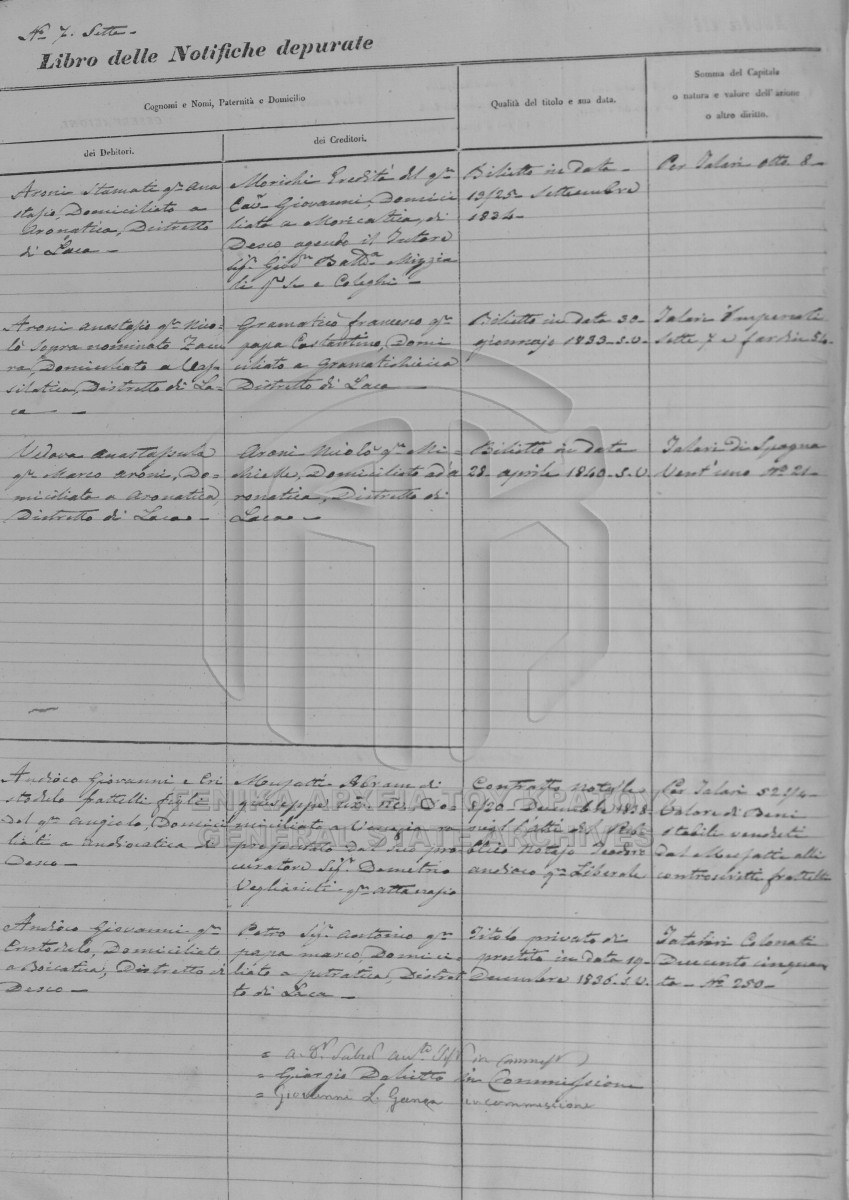 No 7. Sette
Libro delle Notifiche depurate
Cognomi e Nomi, Paternità e Domicilio
dei Debitori.
dei Creditori.
Qualità del titolo e sua data.
Somma del Capitale
o natura e valore dell'azione
o altro diritto.
Aroni Stamati qm Ana
stasio, Domiciliato a
Aronatica, Distretto
di Laca
Morichi Eredità del qm
Cavr Giovanni, Domici
liato a Moricatica, di
Desco agendo il Tutore
Sigr Giovn Battta Mizzia
li e Coleghi
Bilietto in data
19/25 Settembre
1834
Per Talari otto 8
Aroni Anastasio qm Nico
lò sopra nominato
Domiciliato a
Distretto di La
ca
Gramaticò francesco qm
papa Costantino, Domi
ciliato a Gramatichieica
Distretto di Laca
Bilietto in data 30
giennajo 1833 S.V.
Talari Imperiali
Sette 7 e fardin 54
Vedova Anastasula
qm Marco Aroni, Do
miciliata a Aronatica,
Distretto di Laca
Aroni Nicolò qm Mi
chielle, Domiciliato ad A
ronatica, Distretto di
Laca
Bilietto in data
28 aprile 1840 S.V.
Talari di Spagna
Vent'uno No 21
Andioco Giovanni e Cri
stodolo frattelli figli
del qm Angielo, Domici
liati a Andiocatica di
Desco
Musatti Abram di
Giuseppe Do
miciliato a Venezia ra
presentato dal suo pro
curatore Sigr Demetrio
Veglianiti qm Attanasio
Contratto
8/20 Decembre 1838
negl'atti del Pub
blico Notajo Teodoro
Andioco qm Liberale
Per Talari 52 1/4
Valore di Beni
stabili venduti
dal Musatti alli
controscritti frattelli
Andioco Giovanni qm
Cristodolo, Domiciliato
a Boicatica, Distretto di
Desco
Petro Sigr Antonio qm
papa Marco, Domici
liato a petratica, Distret
to di Laca
Titolo privato di
prestito in data 19
Decembre 1836 S.V.
Tatalari Colonati
Duecento cinquan
ta No 250
Giorgio in Commissione
Giovanni in commissione
ΓΕΝΙΚΑ ΑΡΧΕΙΑ ΤΟΥ ΚΡΑΤΟΥΣ
GENERAL STATE ARCHIVES